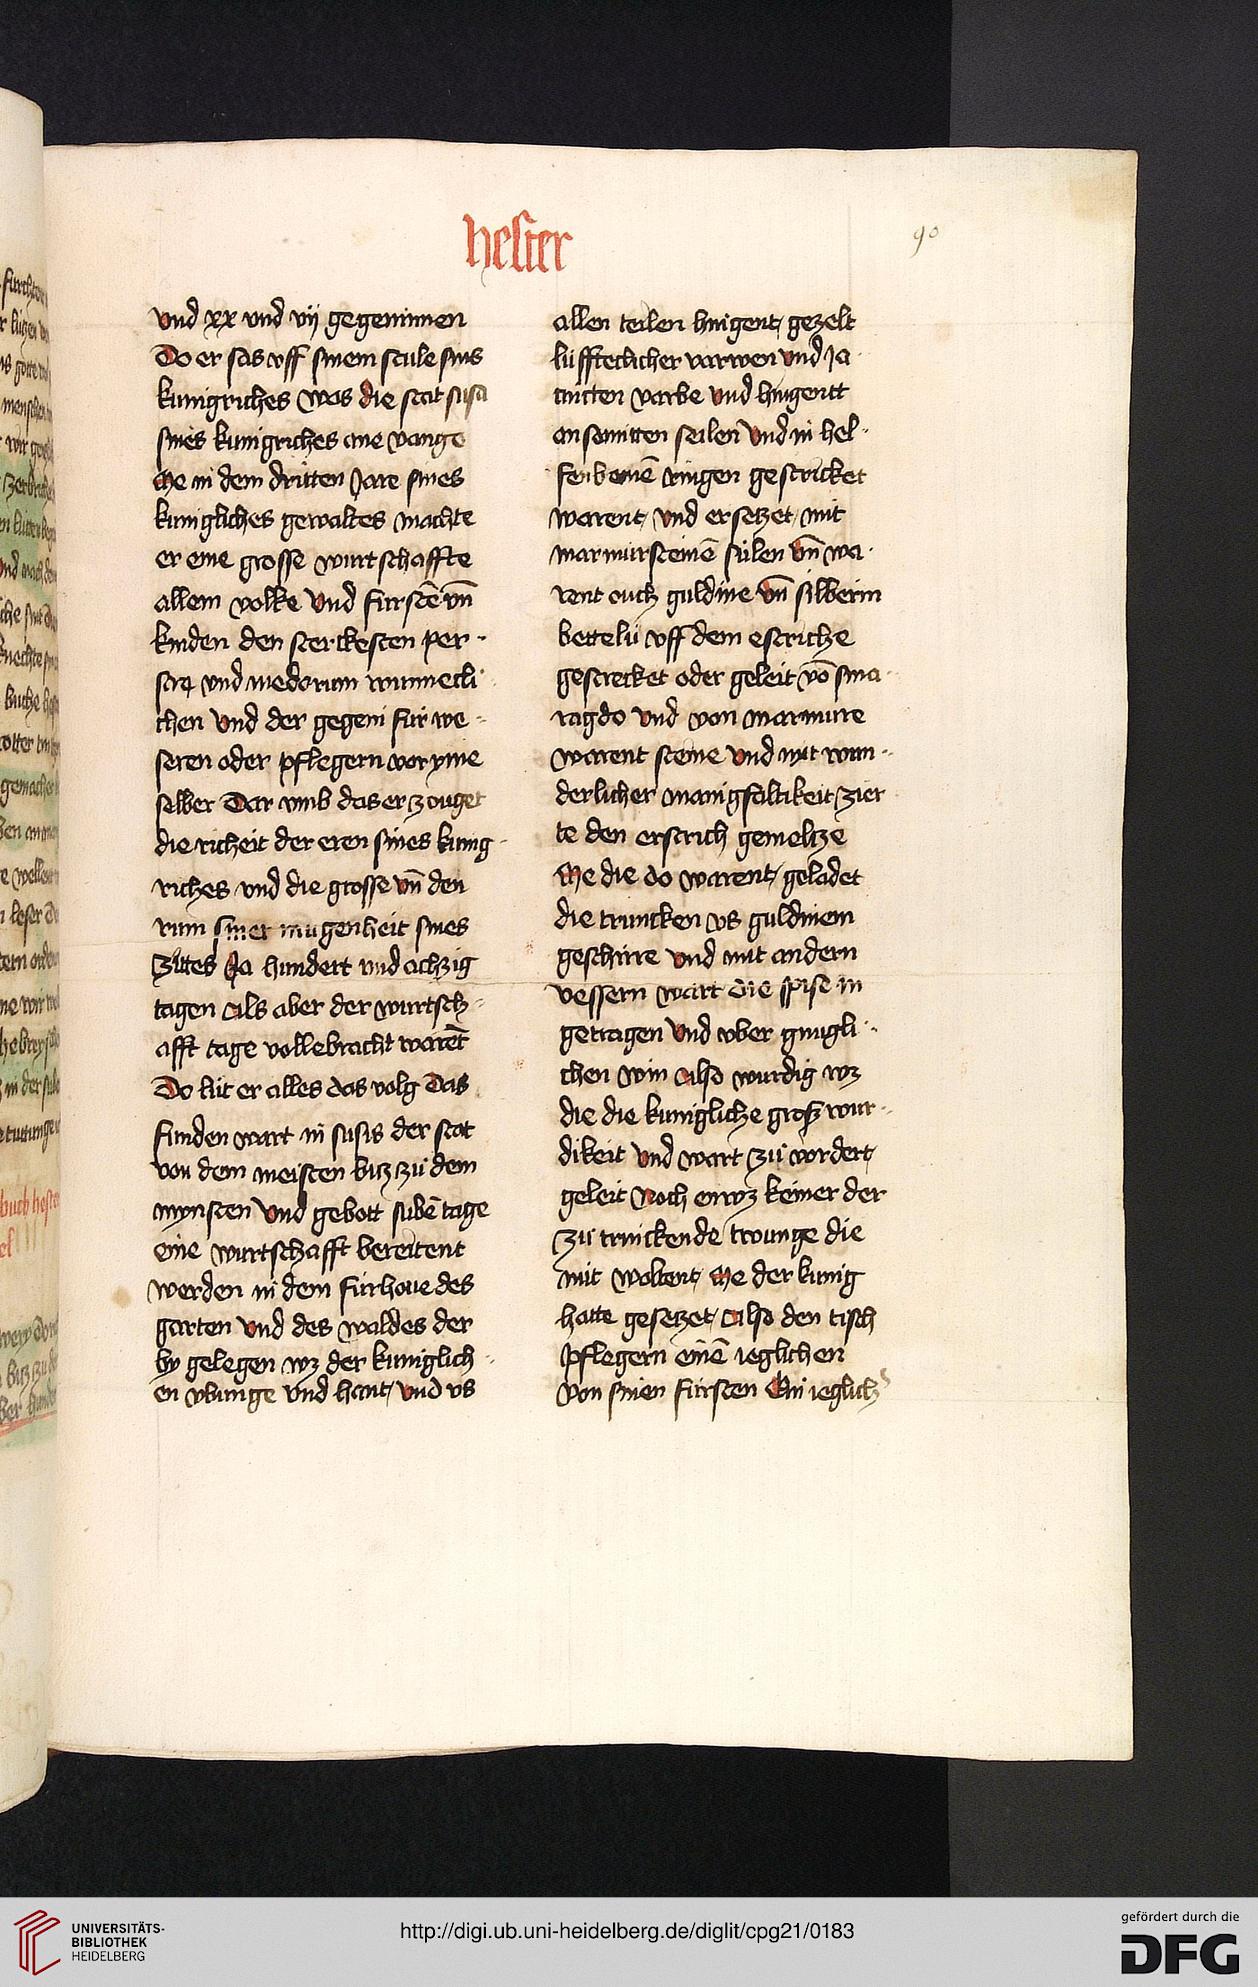 hester
90
vnd xx vnd vij gegeninnen
Do er sas vff sinem stule sins
kunigriches was die stat susa
sines kunigriches ane vange
Me in dem dritten Jare sines
kunigliches gewaltes machte
er eine grosse wurtschaffte
allem volke vnd fürstē vn̄
kinden den sterckesten per-
sarū vnd medorum wunnecli
chen vnd der gegeni für we-
seren oder pflegern vor yme
selber Dar vmb das er zouget
die richeit der eren sines kunig-
riches vnd die grosse vn̄ den
rum siner mugenheit sines
Zittes Ja hundert vnd achzig
tagen Als aber der wurtsch-
afft tage vollebracht warēt
Do lüt er alles das volg Das
funden wart in susis der stat
von dem meisten bitz zů dem
mynsten vnd gebott sübē tage
eine wurtschafft bereitent
werden in dem fürhoue des
garten vnd des waldes der
by gelegen wz der kuniglich-
en vbunge vnd hant, vnd vs
allen teilen hingent, gezelt
lüffteclicher varwen vnd Ja
cincten varbe vnd hingentt
an samitten seilen vnd in hel-
fenbeinē ringen gestricket
warent, vnd ersetzet, mit
marmürsteinē sülen vn̄ wa-
rent ouch guldine vn̄ silberin
bettelü vff dem estriche
gestrecket oder geleit vō sma-
ragdo vnd von marmure
warent steine vnd mit wun-
derlicher manigfaltikeit, zier
te den erstrich gemeltze
Me die do warent, geladet
die truncken vs guldinem
geschirre vnd mit andern
vessern wart die spise in
getragen vnd vber gnugli-
chen win Also wurdig wz
die die kunigliche grosz wur-
dikeit vnd wart zů vordert,
geleit Noch enwz keiner der
zů trinckende twunge die
nüt woltent, Me der kunig
hatte gesetzet, Also den tisch
pflegern einē ieglichen
von sinen fürsten Ein ieglich
UNIVERSITÄTS-
BIBLIOTHEK
HEIDELBERG
http://digi.ub.uni-heidelberg.de/diglit/cpg21/0183
gefördert durch die
DFG